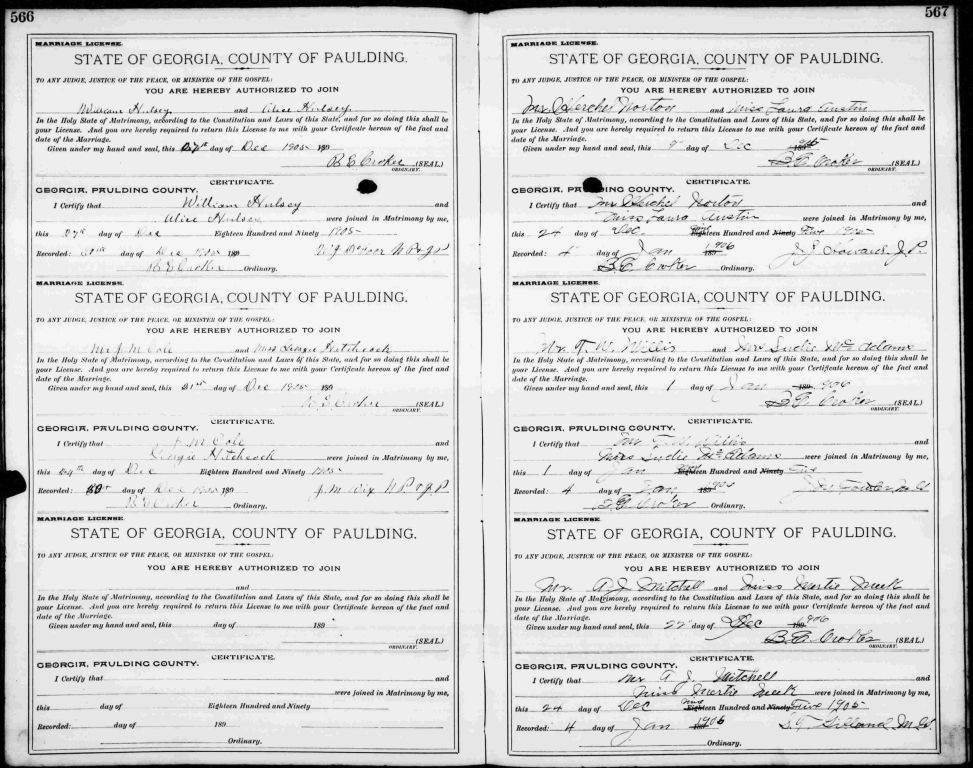 566
MARRIAGE LICENSE.
STATE OF GEORGIA, COUNTY OF PAULDING.
TO ANY JUDGE, JUSTICE OF THE PEACE, OR MINISTER OF THE GOSPEL:
YOU ARE HEREBY AUTHORIZED TO JOIN
William Hulsey and Alice Hulsey
In the Holy State of Matrimony, according to the Constitution and Laws of this State, and for so doing this shall be
your License. And you are hereby required to return this License to me with your Certificate hereon of the fact and
date of the Marriage.
Given under my hand and seal, this 27th day of Dec 1905 189
B. E. Croker (SEAL)
ORDINARY.
CERTIFICATE.
GEORGIA, PAULDING COUNTY.
I Certify that William Hulsey and
Alice Hulsey were joined in Matrimony by me,
this 27th day of Dec Eighteen Hundred and Ninety 1905
Recorded: day of Dec 1905 189 N P & J P
Croker Ordinary.
MARRIAGE LICENSE.
STATE OF GEORGIA, COUNTY OF PAULDING.
TO ANY JUDGE, JUSTICE OF THE PEACE, OR MINISTER OF THE GOSPEL:
YOU ARE HEREBY AUTHORIZED TO JOIN
Mr J. M Cole and Miss Hitchcock
In the Holy State of Matrimony, according to the Constitution and Laws of this State, and for so doing this shall be
your License. And you are hereby required to return this License to me with your Certificate hereon of the fact and
date of the Marriage.
Given under my hand and seal, this 21st day of Dec 1905 189
Croker (SEAL)
ORDINARY.
CERTIFICATE.
GEORGIA, PAULDING COUNTY.
I Certify that J. M Cole and
Hitchcock were joined in Matrimony by me,
this 24th day of Dec Eighteen Hundred and Ninety 1905
Recorded: day of Dec 1905 189 J. M. N P & J P
Croker Ordinary.
MARRIAGE LICENSE.
STATE OF GEORGIA, COUNTY OF PAULDING.
TO ANY JUDGE, JUSTICE OF THE PEACE, OR MINISTER OF THE GOSPEL:
YOU ARE HEREBY AUTHORIZED TO JOIN
and
In the Holy State of Matrimony, according to the Constitution and Laws of this State, and for so doing this shall be
your License. And you are hereby required to return this License to me with your Certificate hereon of the fact and
date of the Marriage.
Given under my hand and seal, this day of 189
(SEAL)
ORDINARY.
CERTIFICATE.
GEORGIA, PAULDING COUNTY.
I Certify that and
were joined in Matrimony by me,
this day of Eighteen Hundred and Ninety
Recorded: day of 189
Ordinary.
567
MARRIAGE LICENSE.
STATE OF GEORGIA, COUNTY OF PAULDING.
TO ANY JUDGE, JUSTICE OF THE PEACE, OR MINISTER OF THE GOSPEL:
YOU ARE HEREBY AUTHORIZED TO JOIN
Mr Norton and Miss Laura Austin
In the Holy State of Matrimony, according to the Constitution and Laws of this State, and for so doing this shall be
your License. And you are hereby required to return this License to me with your Certificate hereon of the fact and
date of the Marriage.
Given under my hand and seal, this 9 day of Dec 189
B. E. Croker (SEAL)
ORDINARY.
CERTIFICATE.
GEORGIA, PAULDING COUNTY.
I Certify that Mr Norton and
Miss Laura Austin were joined in Matrimony by me,
this 24 day of Dec. Eighteen Hundred and Ninety Five 1905
Recorded: 4 day of Jan 1906 189 J. P.
B. E. Croker Ordinary.
MARRIAGE LICENSE.
STATE OF GEORGIA, COUNTY OF PAULDING.
TO ANY JUDGE, JUSTICE OF THE PEACE, OR MINISTER OF THE GOSPEL:
YOU ARE HEREBY AUTHORIZED TO JOIN
Mr. T. W. Willis and Mrs Ludie McAdams
In the Holy State of Matrimony, according to the Constitution and Laws of this State, and for so doing this shall be
your License. And you are hereby required to return this License to me with your Certificate hereon of the fact and
date of the Marriage.
Given under my hand and seal, this 1 day of Jan 189 1906
B. E. Croker (SEAL)
ORDINARY.
CERTIFICATE.
GEORGIA, PAULDING COUNTY.
I Certify that Mr T. W. Willis and
Mrs Ludie McAdams were joined in Matrimony by me,
this 1 day of Jan Eighteen Hundred and Ninety Five
Recorded: 4 day of Jan 189
B. E. Croker Ordinary.
MARRIAGE LICENSE.
STATE OF GEORGIA, COUNTY OF PAULDING.
TO ANY JUDGE, JUSTICE OF THE PEACE, OR MINISTER OF THE GOSPEL:
YOU ARE HEREBY AUTHORIZED TO JOIN
Mr. A. J. Mitchell and Miss Mertie Meek
In the Holy State of Matrimony, according to the Constitution and Laws of this State, and for so doing this shall be
your License. And you are hereby required to return this License to me with your Certificate hereon of the fact and
date of the Marriage.
Given under my hand and seal, this 22 day of Dec 1906 189
B. E. Croker (SEAL)
ORDINARY.
CERTIFICATE.
GEORGIA, PAULDING COUNTY.
I Certify that Mr A. J. Mitchell and
Miss Mertie Meek were joined in Matrimony by me,
this 24 day of Dec Nine Eighteen Hundred and Ninety Five 1905
Recorded: 4 day of Jan 1906 189 M. G.
Ordinary.